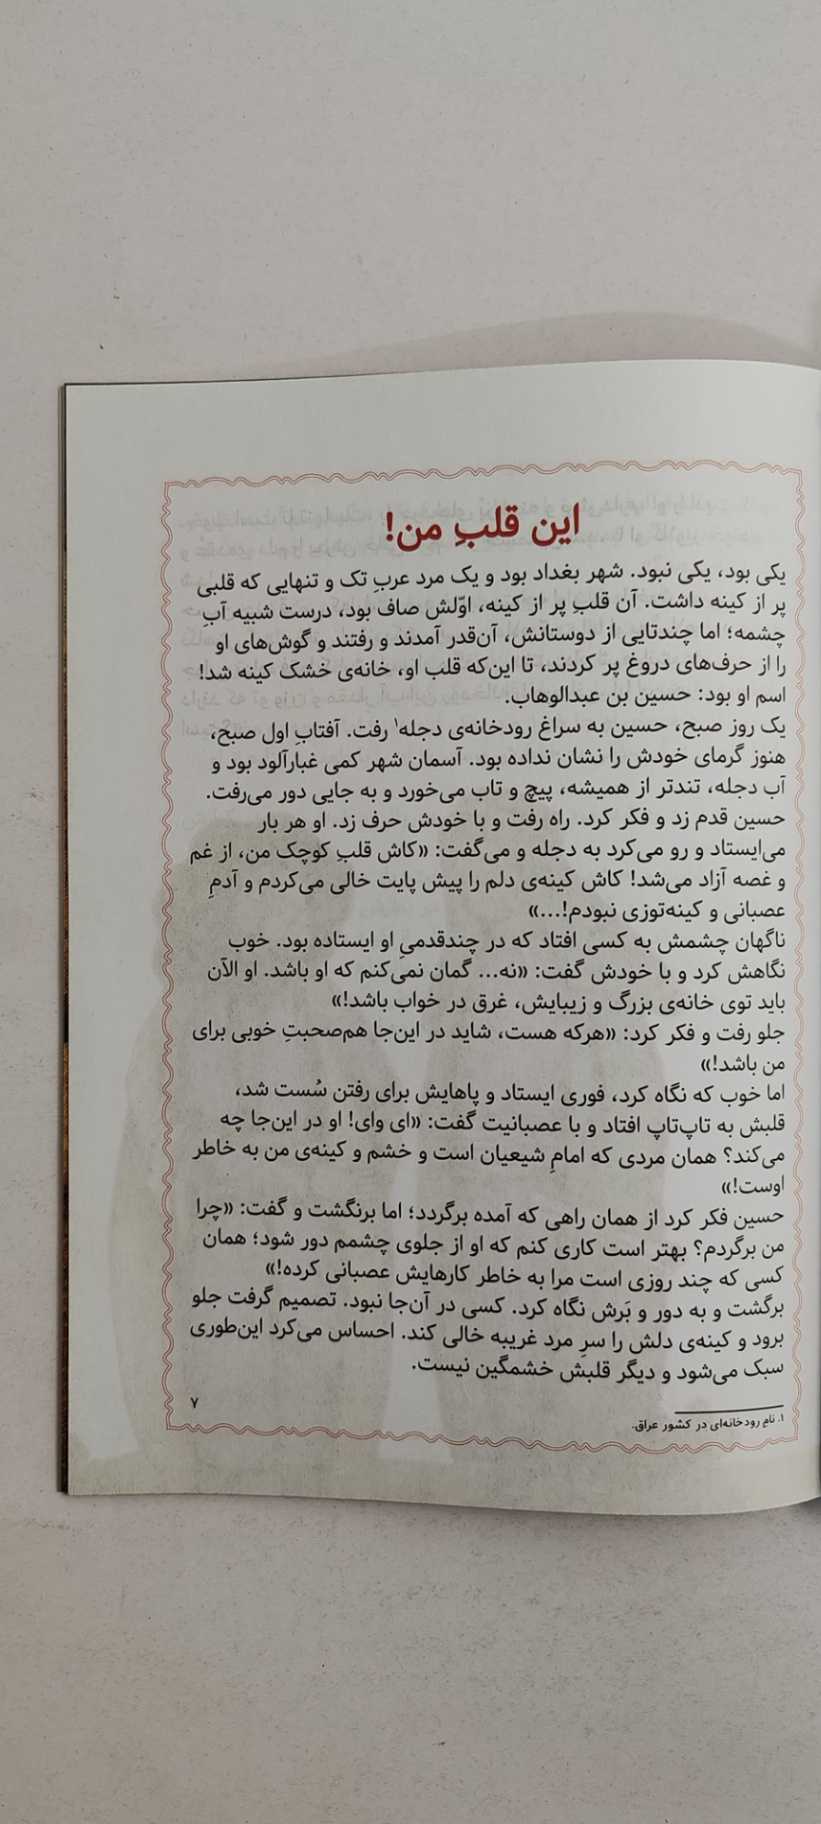 این قلبِ من!
یکی بود، یکی نبود. شهر بغداد بود و یک مرد عربِ تک و تنهایی که قلبی
پر از کینه داشت. آن قلبِ پر از کینه، اوّلش صاف بود، درست شبیه آبِ
چشمه؛ اما چندتایی از دوستانش، آن‌قدر آمدند و رفتند و گوش‌های او
را از حرف‌های دروغ پر کردند، تا این‌که قلب او، خانه‌ی خشک کینه شد!
اسم او بود: حسین بن عبدالوهاب.
یک روز صبح، حسین به سراغ رودخانه‌ی دجله۱ رفت. آفتابِ اول صبح،
هنوز گرمای خودش را نشان نداده بود. آسمان شهر کمی غبارآلود بود و
آب دجله، تندتر از همیشه، پیچ و تاب می‌خورد و به جایی دور می‌رفت.
حسین قدم زد و فکر کرد. راه رفت و با خودش حرف زد. او هر بار
می‌ایستاد و رو می‌کرد به دجله و می‌گفت: «کاش قلبِ کوچک من، از غم
و غصه آزاد می‌شد! کاش کینه‌ی دلم را پیش پایت خالی می‌کردم و آدمِ
عصبانی و کینه‌توزی نبودم!...»
ناگهان چشمش به کسی افتاد که در چندقدمیِ او ایستاده بود. خوب
نگاهش کرد و با خودش گفت: «نه... گمان نمی‌کنم که او باشد. او الآن
باید توی خانه‌ی بزرگ و زیبایش، غرق در خواب باشد!»
جلو رفت و فکر کرد: «هرکه هست، شاید در این‌جا هم‌صحبتِ خوبی برای
من باشد!»
اما خوب که نگاه کرد، فوری ایستاد و پاهایش برای رفتن سُست شد،
قلبش به تاپ‌تاپ افتاد و با عصبانیت گفت: «ای وای! او در این‌جا چه
می‌کند؟ همان مردی که امامِ شیعیان است و خشم و کینه‌ی من به خاطر
اوست!»
حسین فکر کرد از همان راهی که آمده برگردد؛ اما برنگشت و گفت: «چرا
من برگردم؟ بهتر است کاری کنم که او از جلوی چشمم دور شود؛ همان
کسی که چند روزی است مرا به خاطر کارهایش عصبانی کرده!»
برگشت و به دور و بَرش نگاه کرد. کسی در آن‌جا نبود. تصمیم گرفت جلو
برود و کینه‌ی دلش را سرِ مرد غریبه خالی کند. احساس می‌کرد این‌طوری
سبک می‌شود و دیگر قلبش خشمگین نیست.
۱. نام رودخانه‌ای در کشور عراق.
۷